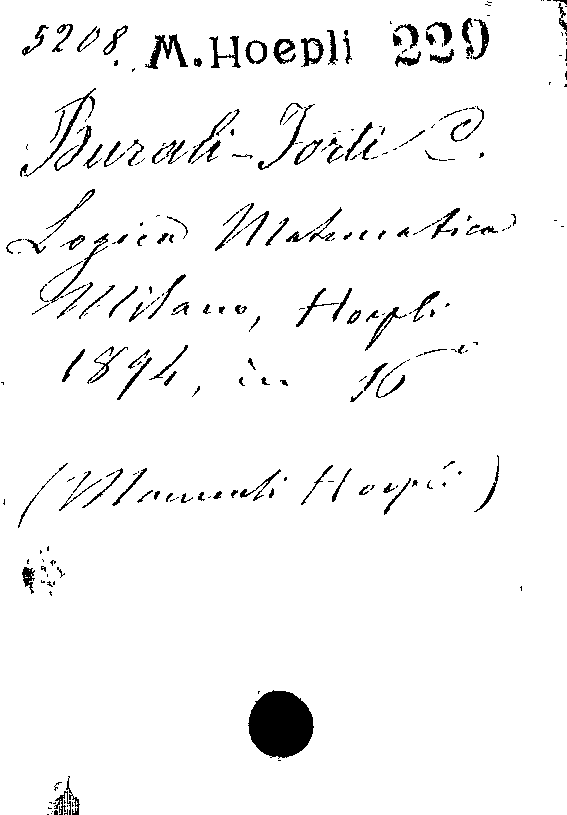 5208. M. Hoepli 229
Burali-Forti C.
Logica Matematica
Milano, Hoepli
1894, in 16°
(Manuali Hoepli)